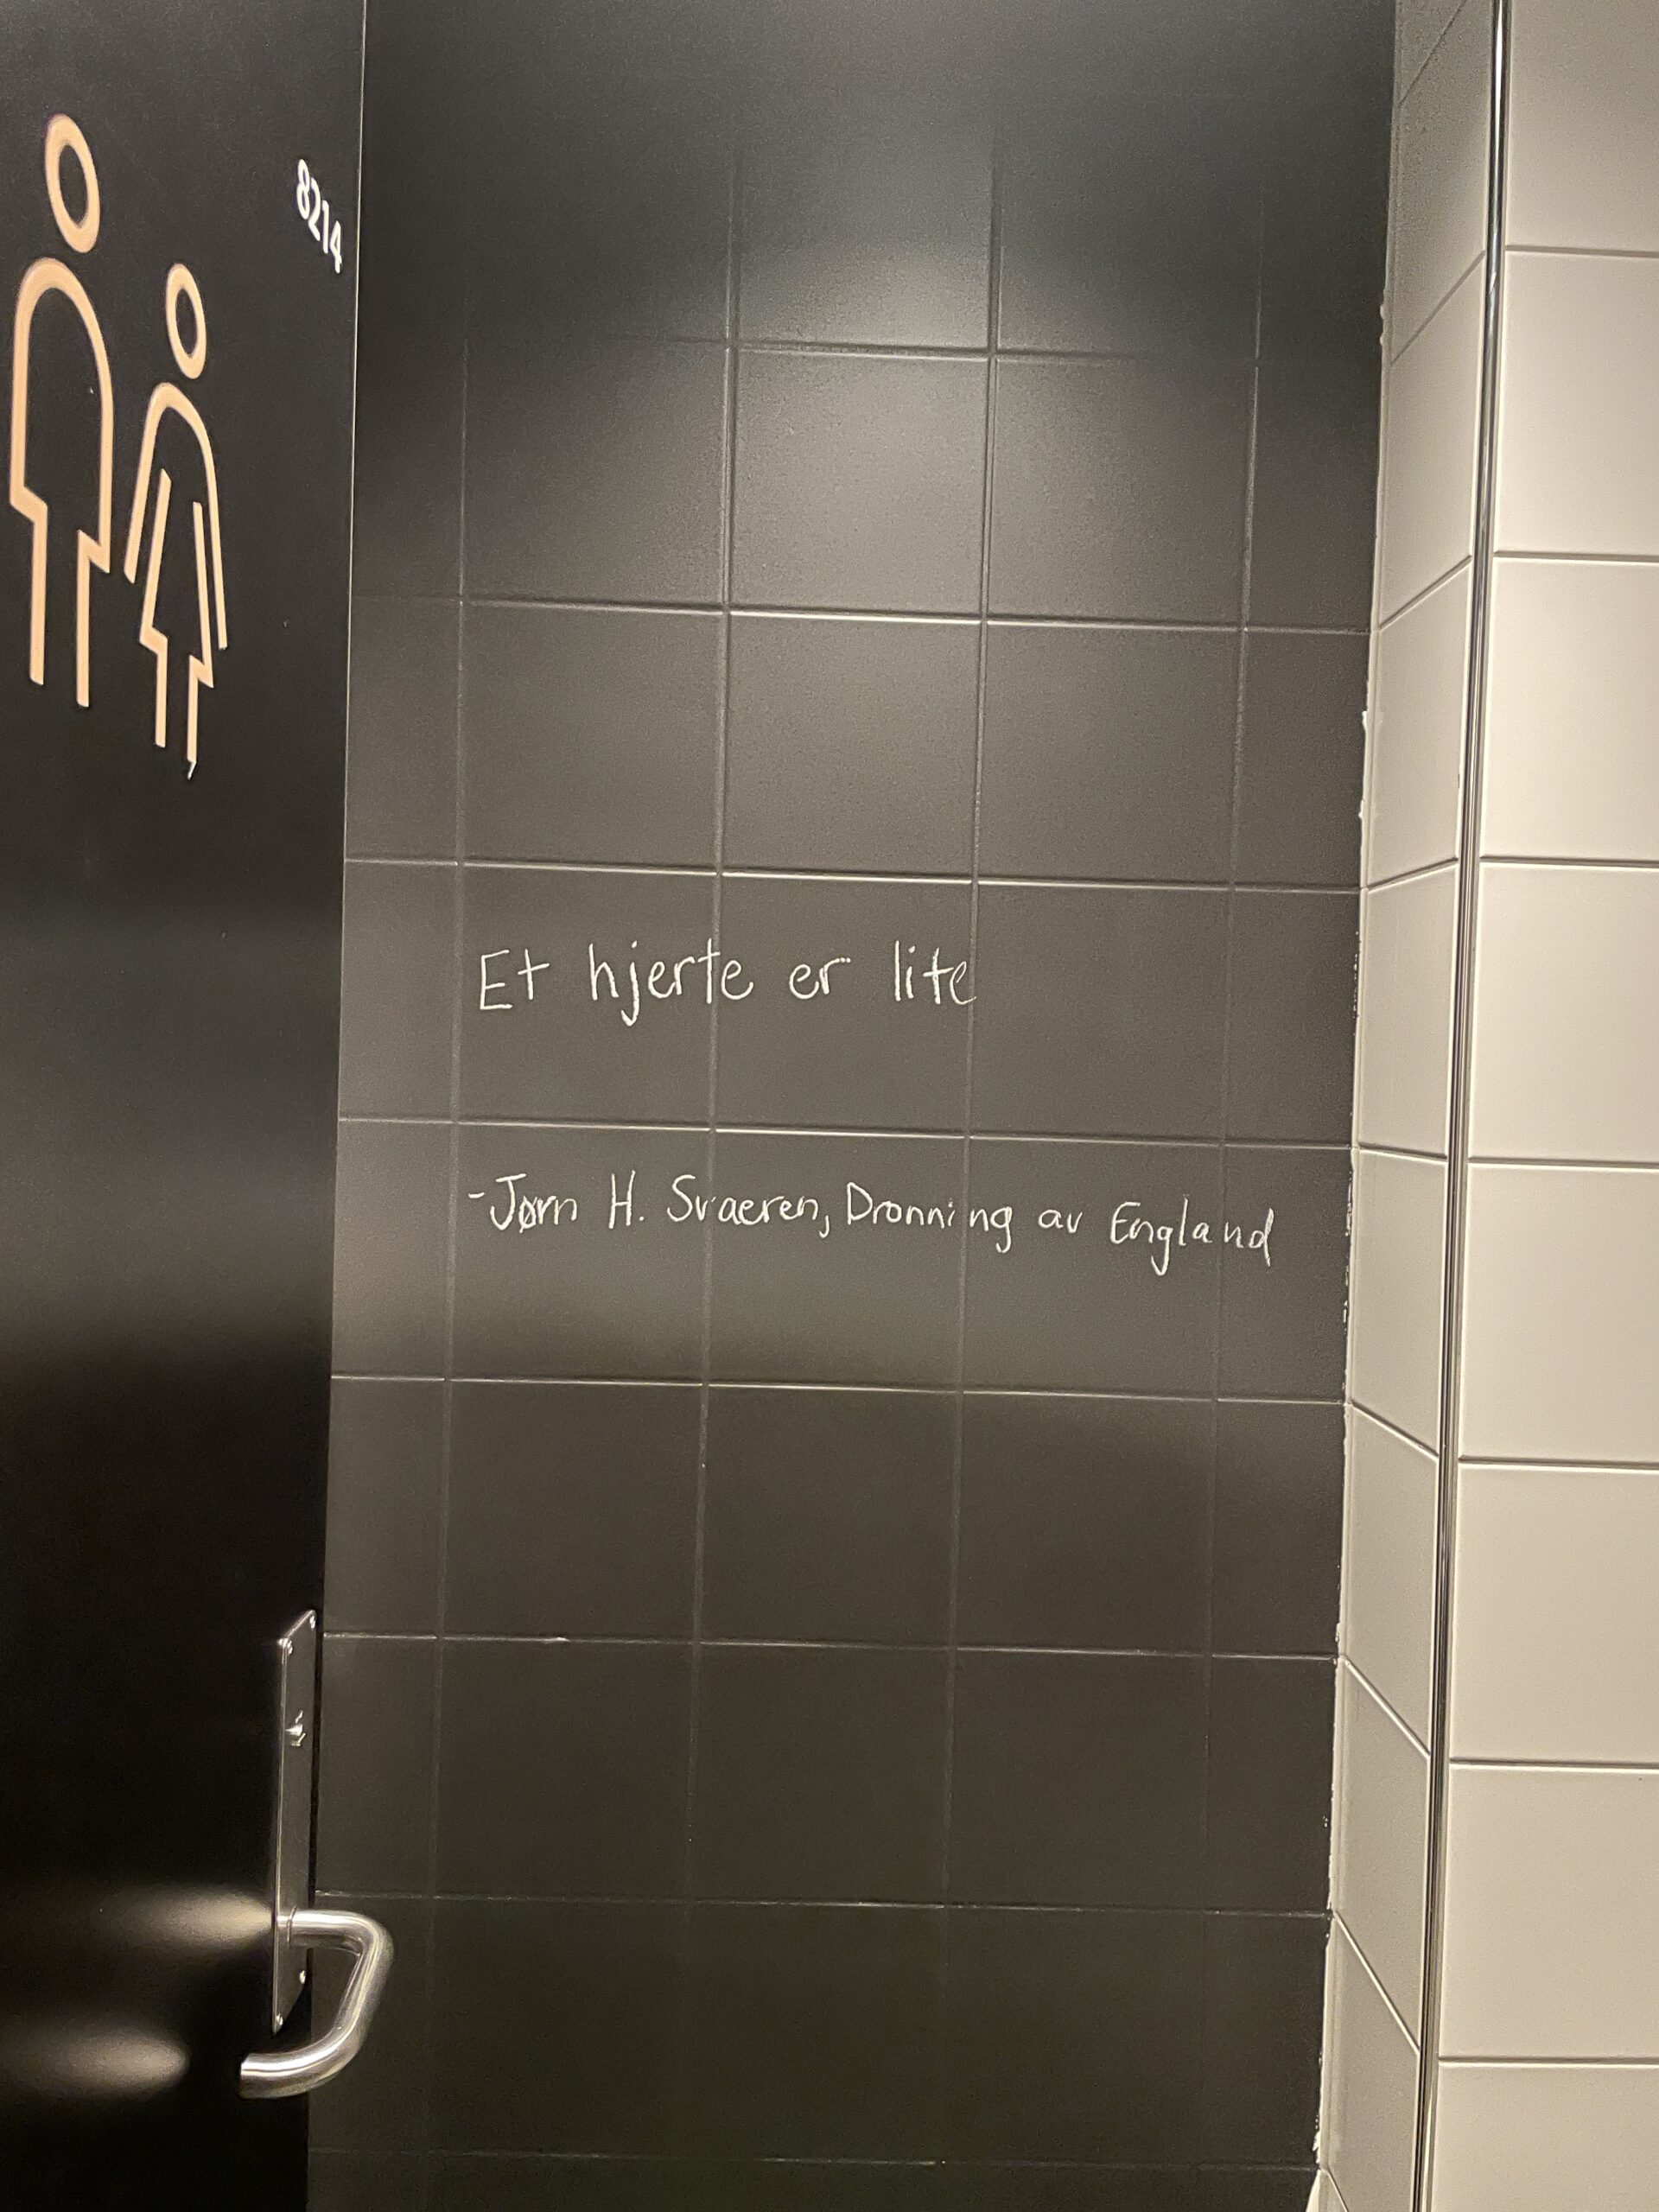 8214
Et hjerte er lite
-Jørn H. Svaeren, Dronning av England